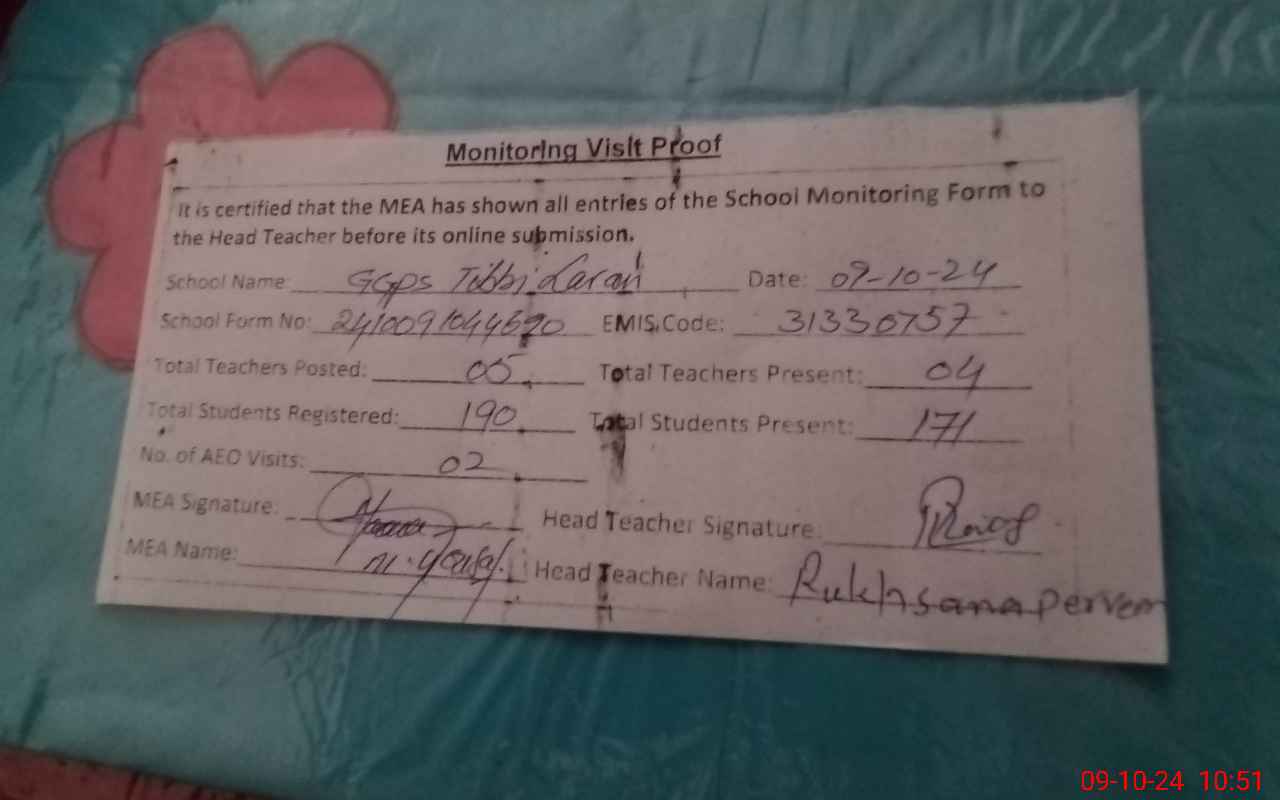 Monitoring Visit Proof
It is certified that the MEA has shown all entries of the School Monitoring Form to
the Head Teacher before its online submission.
School Name: GGPS Tibbi Laran Date: 09-10-24
School Form No: 2410091044690 EMIS Code: 31330757
Total Teachers Posted: 05 Total Teachers Present: 04
Total Students Registered: 190 Total Students Present: 171
No. of AEO Visits: 02
MEA Signature: Head Teacher Signature:
MEA Name: M. Yousaf. Head Teacher Name: Rukhsana Perveen
09-10-24 10:51